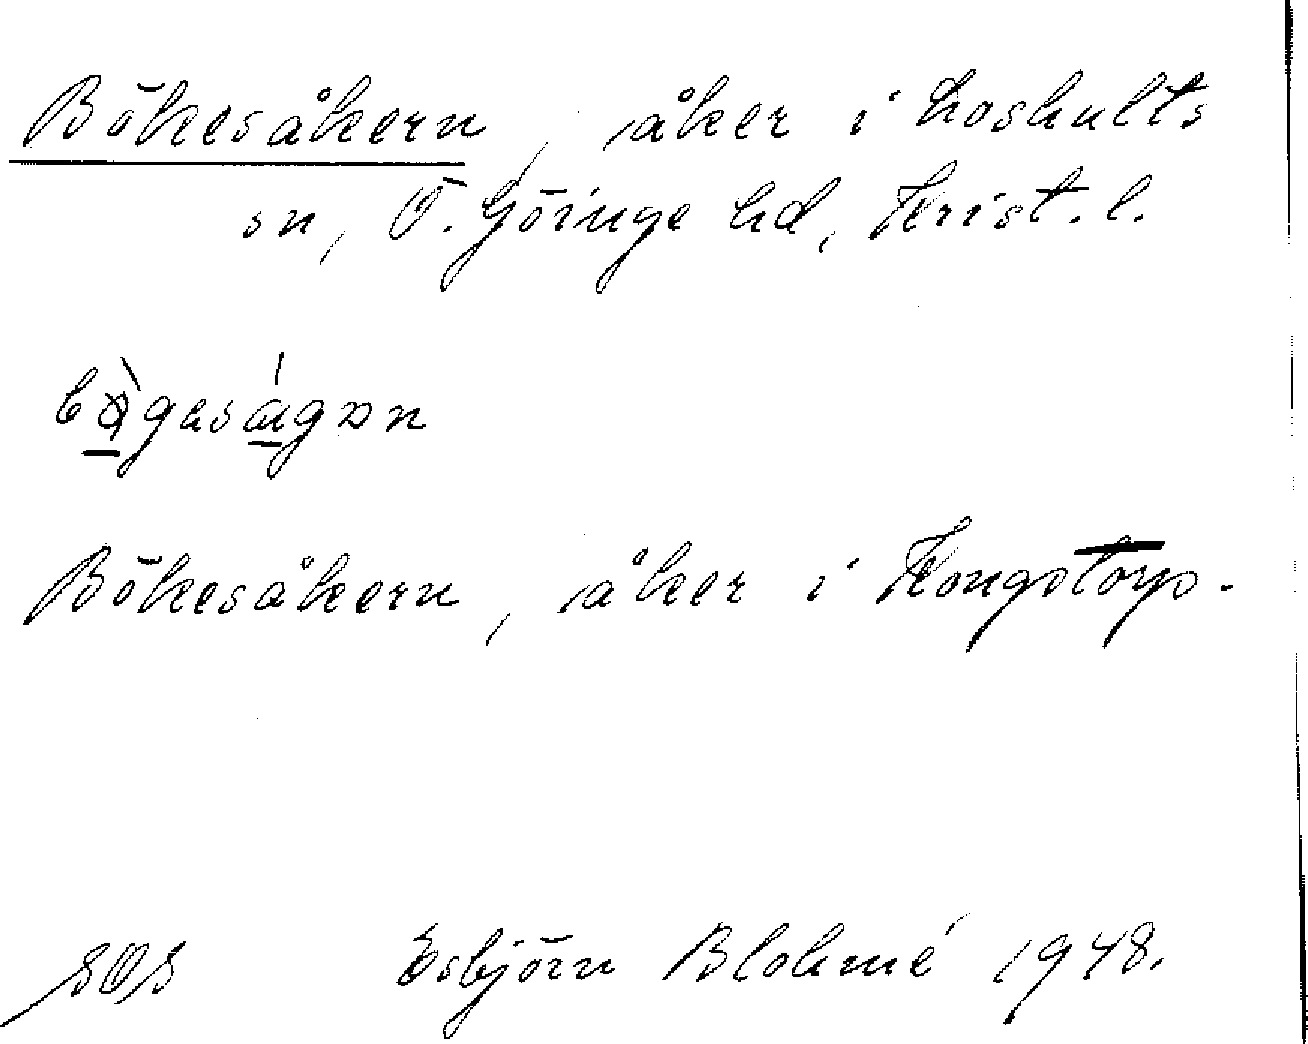 Bökesåkern, åker i Loshults
sn, Ö. Göinge hd, Krist. l.
Bökesåkern, åker i Kongstorp.
SOS Esbjörn Blohmé 1948.